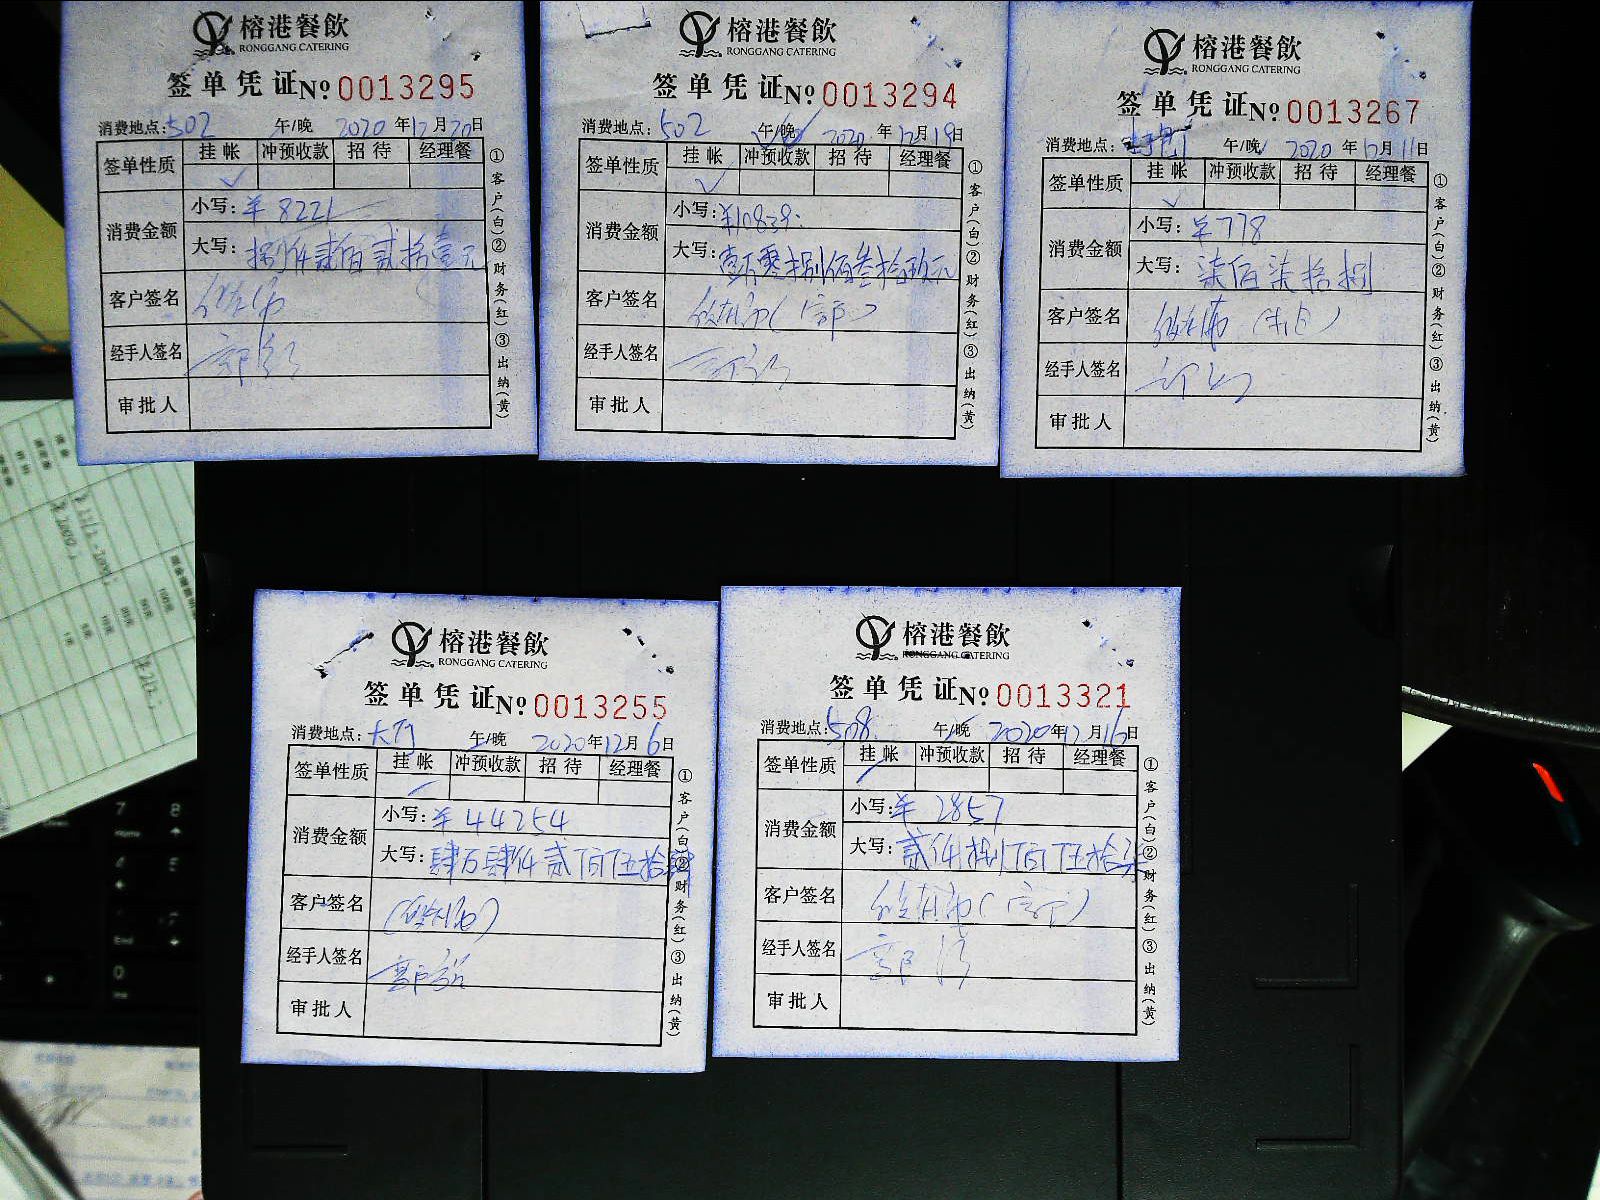 榕港餐飲
RONGGANG CATERING
签单凭证No 0013295
消费地点:502 午/晚 2020年12月20日
签单性质 挂帐 冲预收款 招待 经理餐
✓
消费金额 小写:¥8221
大写:捌仟贰佰贰拾壹元
客户签名
经手人签名
审批人
①客户(白)②财务(红)③出纳(黄)
榕港餐飲
RONGGANG CATERING
签单凭证No 0013294
消费地点:502 午/晚 2020年12月19日
签单性质 挂帐 冲预收款 招待 经理餐
✓
消费金额 小写:¥10839.
大写:壹万零捌佰叁拾玖元
客户签名
经手人签名
审批人
①客户(白)②财务(红)③出纳(黄)
榕港餐飲
RONGGANG CATERING
签单凭证No 0013267
消费地点: 午/晚 2020年12月11日
签单性质 挂帐 冲预收款 招待 经理餐
✓
消费金额 小写:¥778
大写:柒佰柒拾捌
客户签名
经手人签名
审批人
①客户(白)②财务(红)③出纳(黄)
榕港餐飲
RONGGANG CATERING
签单凭证No 0013255
消费地点:大厅 午/晚 2020年12月6日
签单性质 挂帐 冲预收款 招待 经理餐
消费金额 小写:¥44254
大写:肆万肆仟贰佰伍拾肆
客户签名
经手人签名
审批人
①客户(白)②财务(红)③出纳(黄)
榕港餐飲
RONGGANG CATERING
签单凭证No 0013321
消费地点:508 午/晚 2020年12月16日
签单性质 挂帐 冲预收款 招待 经理餐
消费金额 小写:¥2857
大写:贰仟捌佰伍拾柒
客户签名
经手人签名
审批人
①客户(白)②财务(红)③出纳(黄)